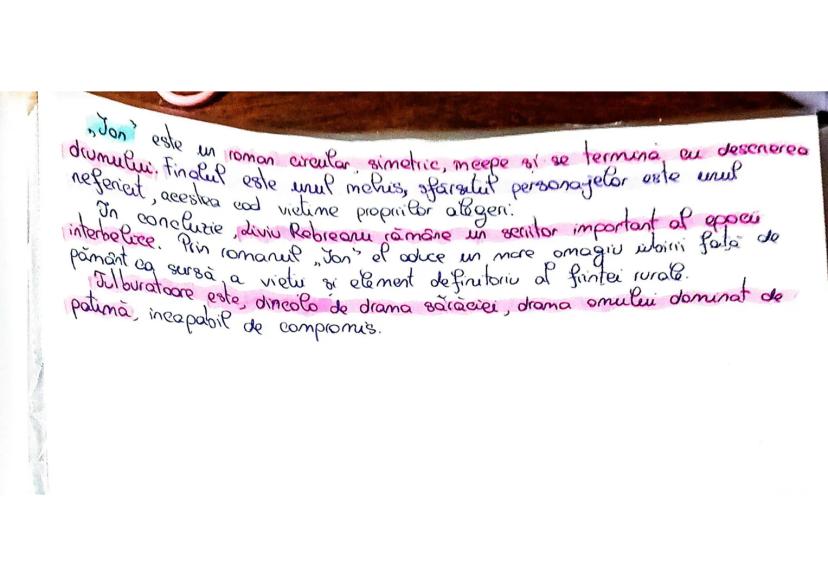 „Ion” este un roman circular, simetric, începe și se termină cu descrierea
drumului. Finalul este unul închis, sfârșitul personajelor este unul
nefericit, acestea cad victime propriilor alegeri.
În concluzie, Liviu Rebreanu rămâne un scriitor important al epocii
interbelice. Prin romanul „Ion” el aduce un mare omagiu iubirii față de
pământ ca sursă a vieții și element definitoriu al ființei rurale.
Tulburătoare este, dincolo de drama sărăciei, drama omului dominat de
patimă, incapabil de compromis.